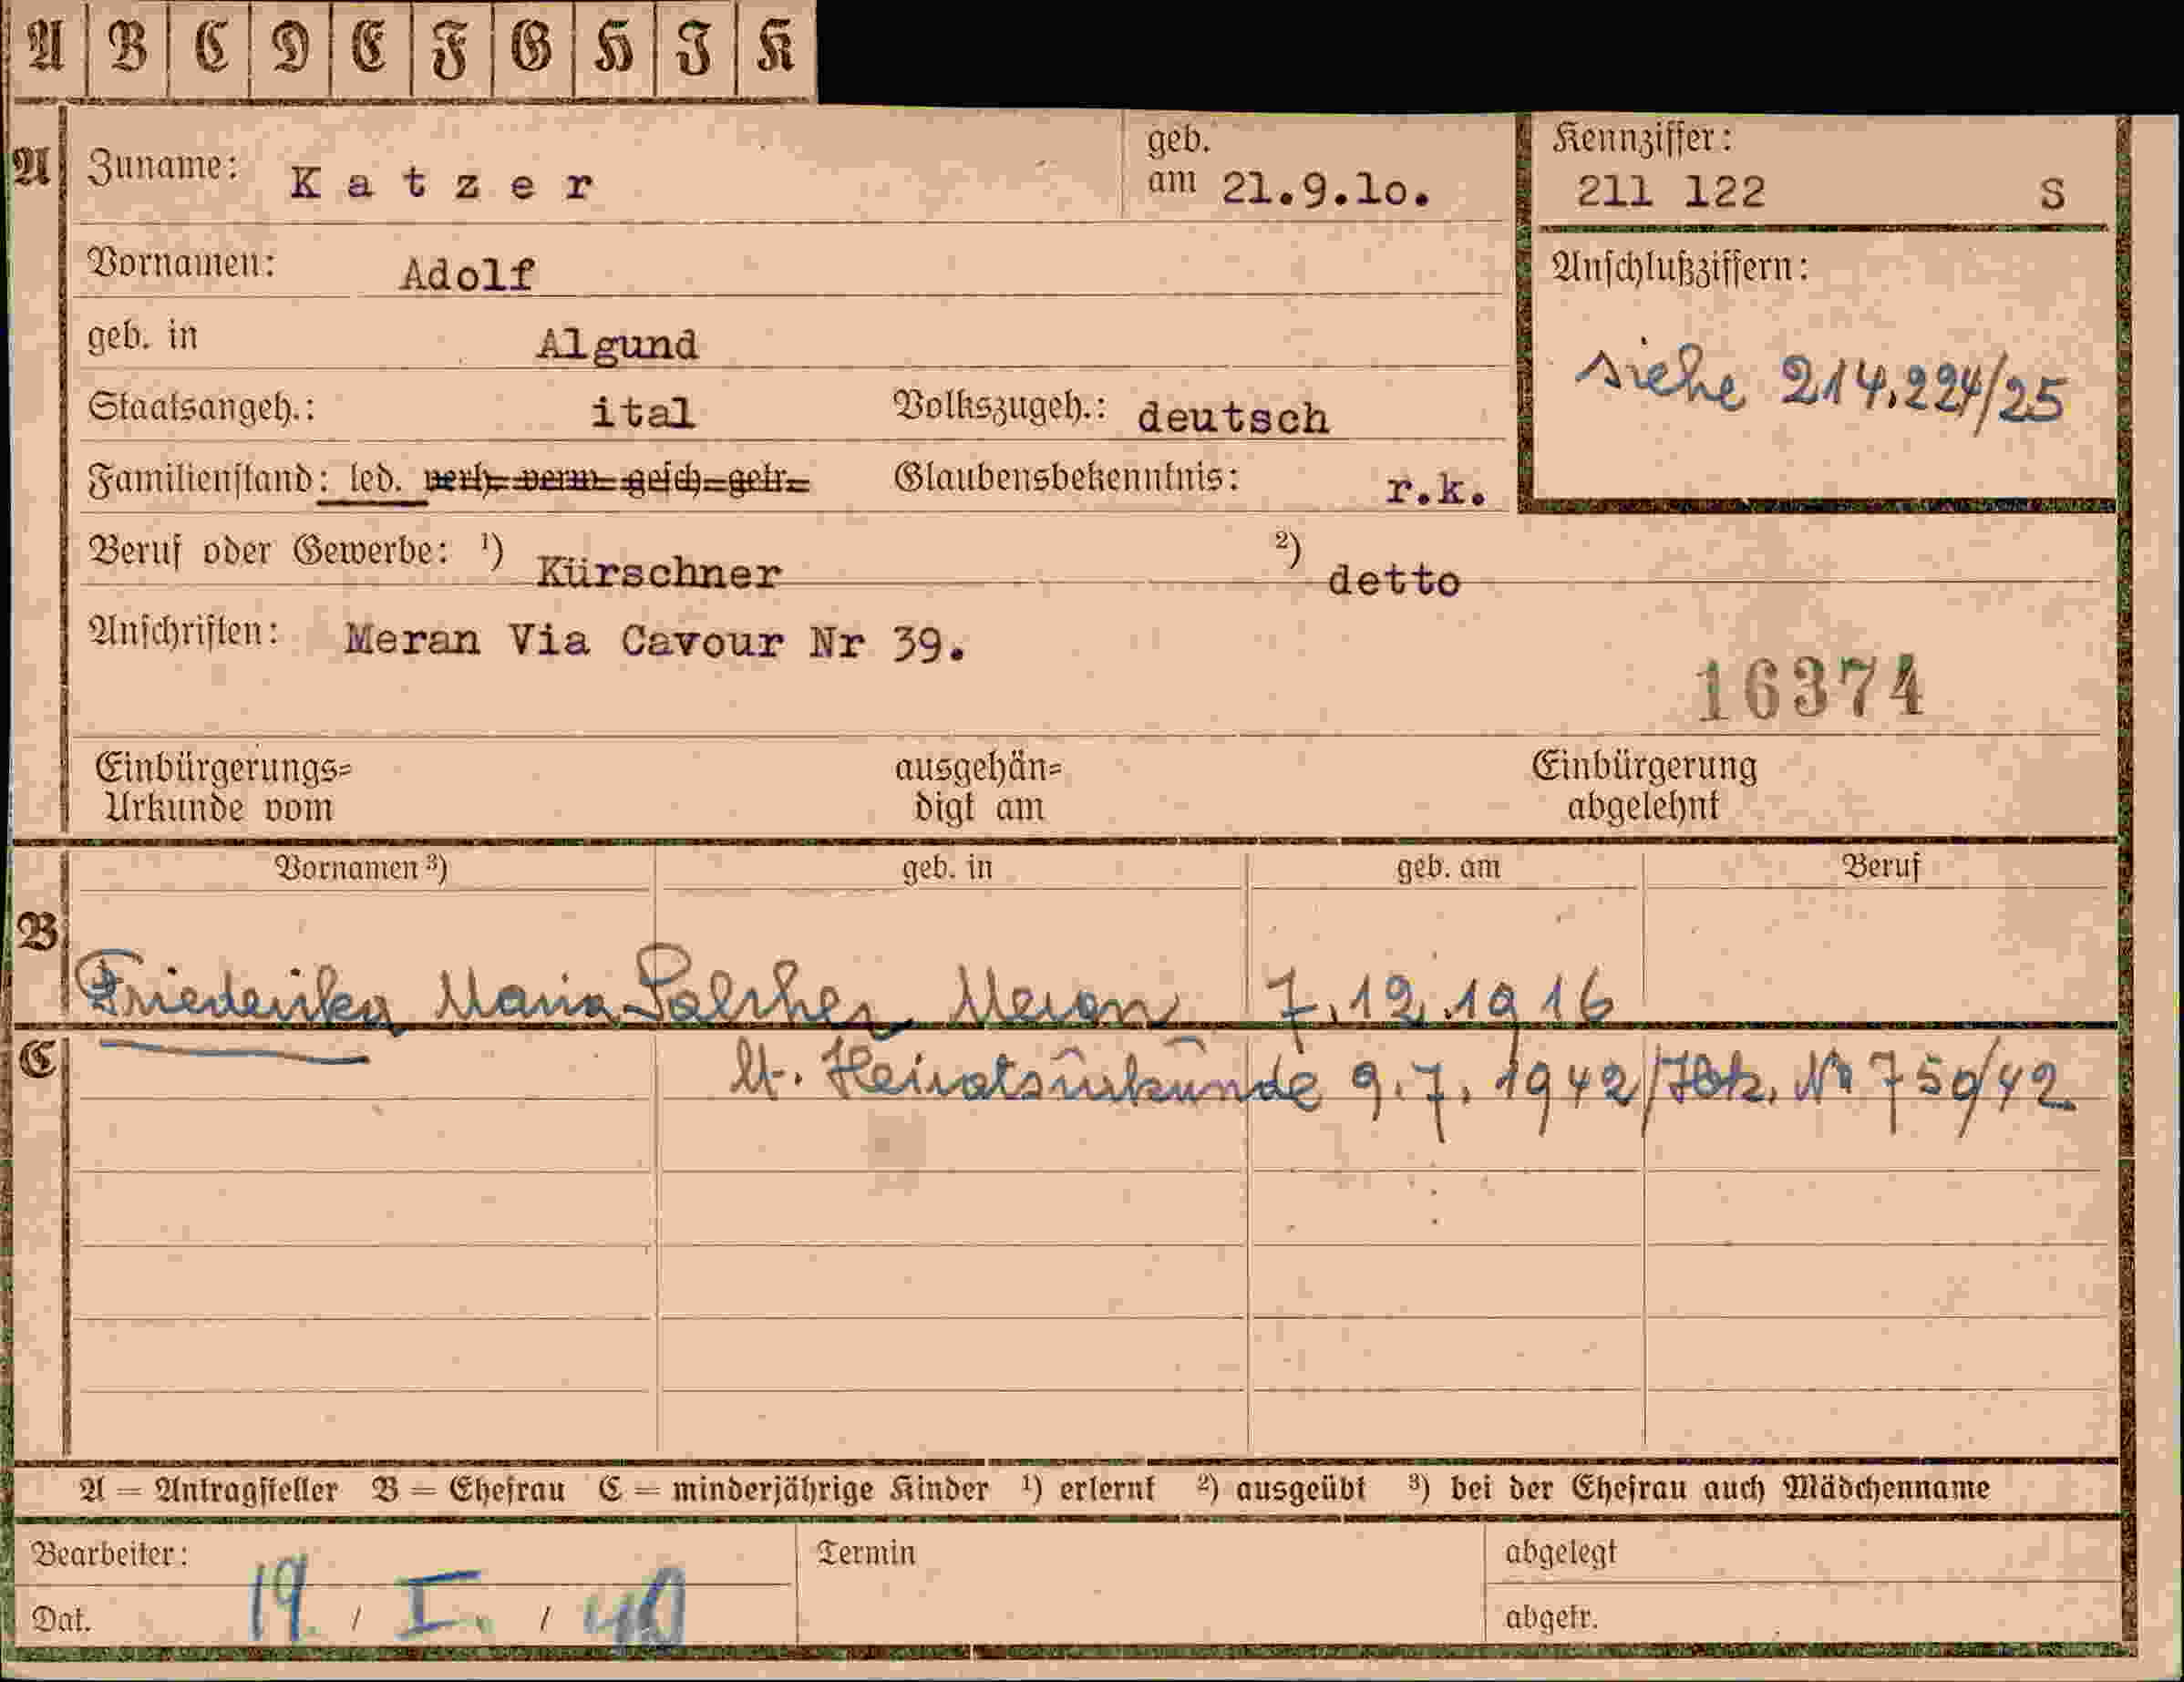 A B C D E F G H J K
A Zuname: Katzer geb. am 21.9.1o. Kennziffer: 211 122 S
Vornamen: Adolf Anschlußziffern:
geb. in Algund
siehe 214.224/25
Staatsangeh.: ital Volkszugeh.: deutsch
Familienstand: led. verh. verw. gesch. getr. Glaubensbekenntnis: r.k.
Beruf oder Gewerbe: ¹) Kürschner ²) detto
Anschriften: Meran Via Cavour Nr 39.
16374
Einbürgerungs= ausgehän= Einbürgerung
Urkunde vom digt am abgelehnt
Vornamen ³) geb. in geb. am Beruf
B
Friederika Maria Meran 7.12.1916
C
lt. Heiratsurkunde 9.7.1942 Nr 750/42
A = Antragsteller B = Ehefrau C = minderjährige Kinder ¹) erlernt ²) ausgeübt ³) bei der Ehefrau auch Mädchenname
Bearbeiter: Termin abgelegt
Dat. 19 / I. / 40 abgetr.